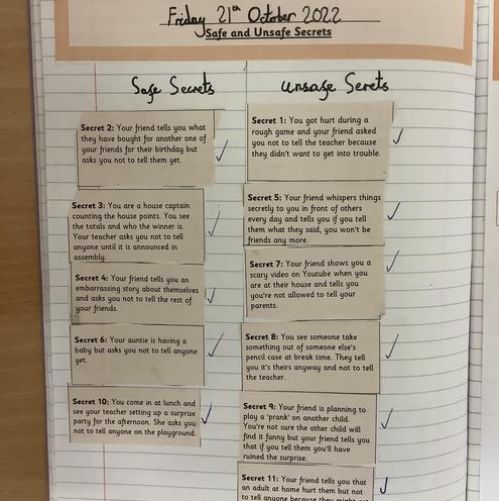 Friday 21th October 2022
Safe and Unsafe Secrets
Safe Secrets
Secret 2: Your friend tells you what
they have bought for another one of
your friends for their birthday but
asks you not to tell them yet.
Secret 3: You are a house captain
counting the house points. You see
the totals and who the winner is.
Your teacher asks you not to tell
anyone until it is announced in
assembly.
Secret 4: Your friend tells you an
embarrassing story about themselves
and asks you not to tell the rest of
your friends.
Secret 6: Your auntie is having a
baby but asks you not to tell anyone
yet.
Secret 10: You come in at lunch and
see your teacher setting up a surprise
party for the afternoon. She asks you
not to tell anyone on the playground.
unsafe Serets
Secret 1: You got hurt during a
rough game and your friend asked
you not to tell the teacher because
they didn't want to get into trouble.
Secret 5: Your friend whispers things
secretly to you in front of others
every day and tells you if you tell
them what they said, you won't be
friends any more.
Secret 7: Your friend shows you a
scary video on Youtube when you
are at their house and tells you
you're not allowed to tell your
parents.
Secret 8: You see someone take
something out of someone else's
pencil case at break time. They tell
you it's theirs anyway and not to tell
the teacher.
Secret 9: Your friend is planning to
play a 'prank' on another child.
You're not sure the other child will
find it funny but your friend tells you
that if you tell them you'll have
ruined the surprise.
Secret 11: Your friend tells you that
an adult at home hurt them but not
to tell anyone because they might get